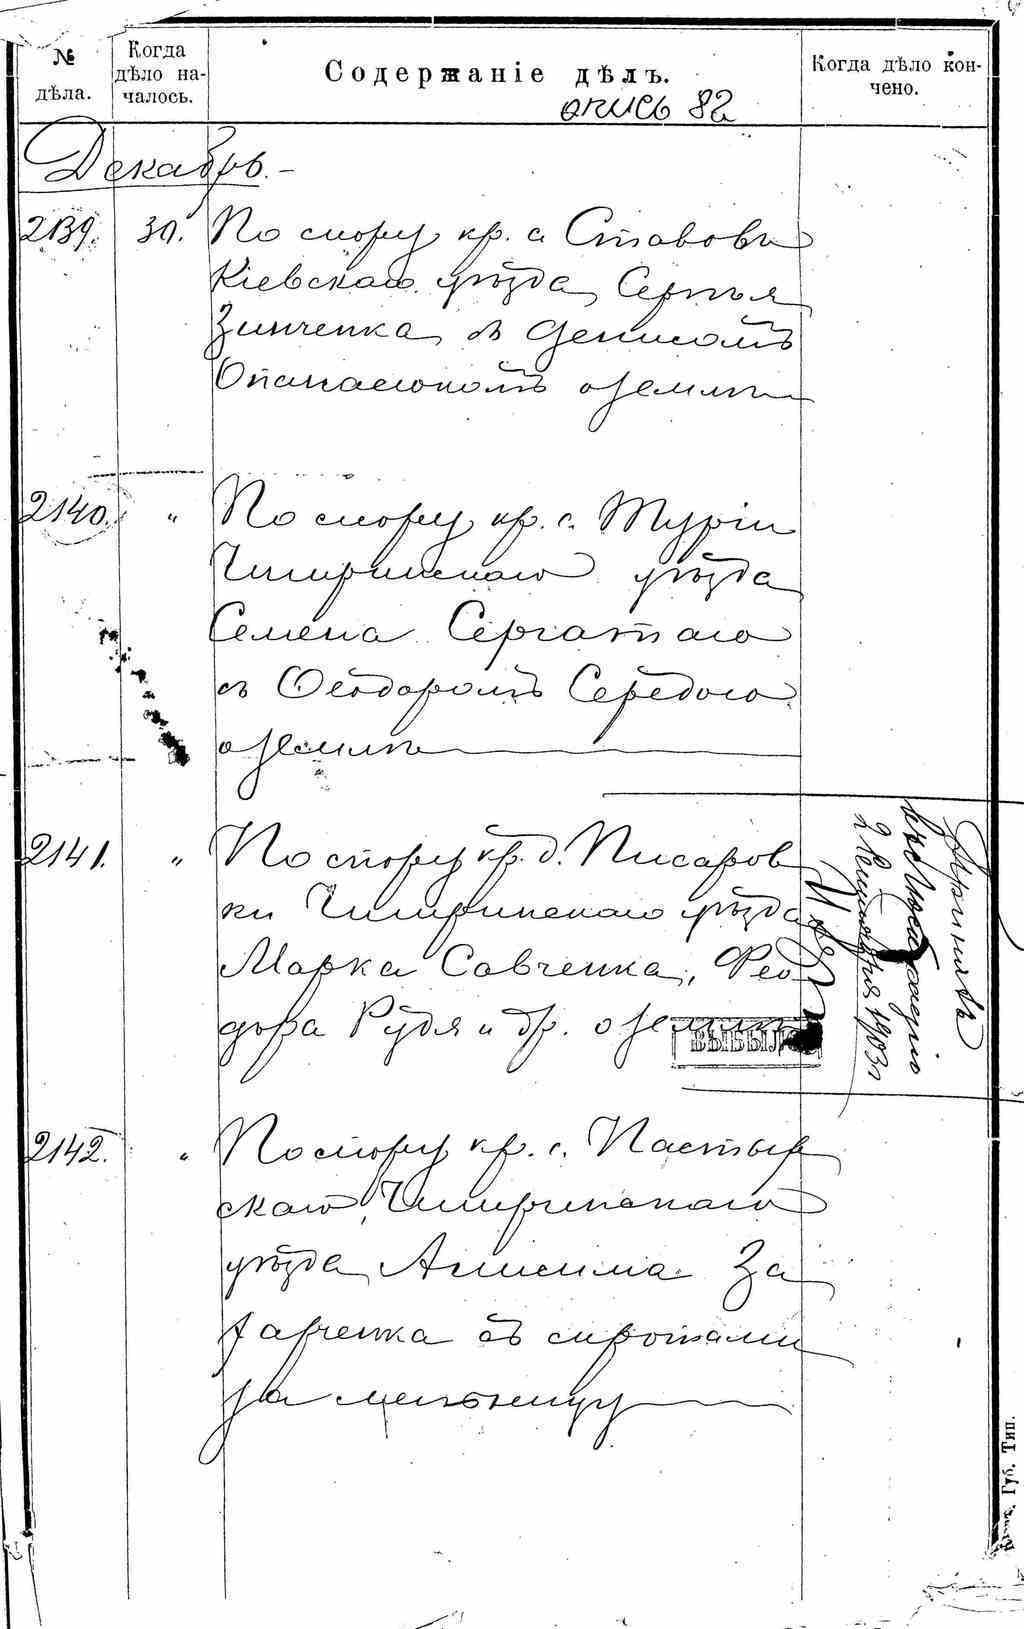 № дѣла.
Когда дѣло началось.
Содержаніе дѣлъ.
Когда дѣло кончено.
опись 82
Декабрь.-
2139. 30. По спору кр. с. Ставовъ
Кіевскаго уѣзда, Сергѣя
Зинченка, съ Денисомъ
Опанасюкомъ о землѣ
2140. " По спору кр. с. Туріи
Чигиринскаго уѣзда
Семена Сергатаго
съ Ѳеодоромъ Середою
о землѣ
2141. " По спору кр. д. Писаров
ки Чигиринскаго уѣзда
Марка Савченка, Ѳео
дора Рудя и др. о землѣ
ВЫБЫЛО
1903 г
2142. " По спору кр. с. Пастыр
скаго, Чигиринскаго
уѣзда, Анисима За
харченка съ сиротами
за мельницу
Губ. Тип.